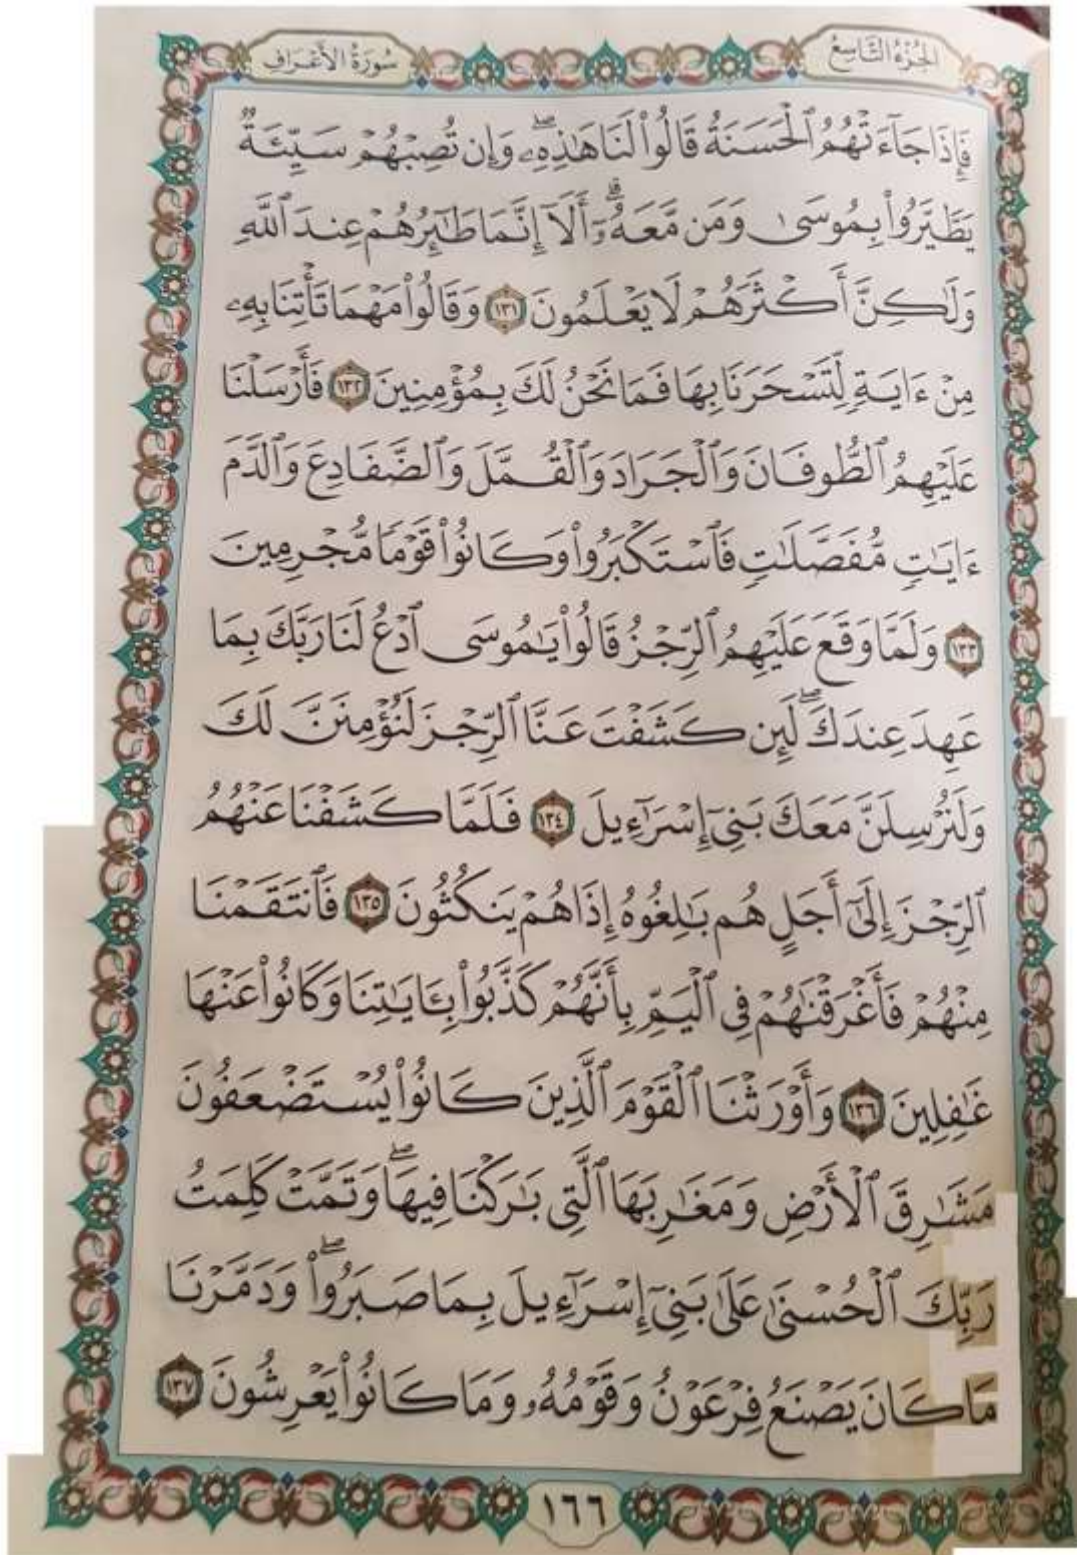 الجزء التاسع
سورة الأعراف
فَإِذَا جَآءَتْهُمُ ٱلْحَسَنَةُ قَالُوا۟ لَنَا هَـٰذِهِۦۖ وَإِن تُصِبْهُمْ سَيِّئَةٌ
يَطَّيَّرُوا۟ بِمُوسَىٰ وَمَن مَّعَهُۥٓۗ أَلَآ إِنَّمَا طَـٰٓئِرُهُمْ عِندَ ٱللَّهِ
وَلَـٰكِنَّ أَكْثَرَهُمْ لَا يَعْلَمُونَ ١٣١ وَقَالُوا۟ مَهْمَا تَأْتِنَا بِهِۦ
مِنْ ءَايَةٍ لِّتَسْحَرَنَا بِهَا فَمَا نَحْنُ لَكَ بِمُؤْمِنِينَ ١٣٢ فَأَرْسَلْنَا
عَلَيْهِمُ ٱلطُّوفَانَ وَٱلْجَرَادَ وَٱلْقُمَّلَ وَٱلضَّفَادِعَ وَٱلدَّمَ
ءَايَـٰتٍ مُّفَصَّلَـٰتٍ فَٱسْتَكْبَرُوا۟ وَكَانُوا۟ قَوْمًا مُّجْرِمِينَ
١٣٣ وَلَمَّا وَقَعَ عَلَيْهِمُ ٱلرِّجْزُ قَالُوا۟ يَـٰمُوسَى ٱدْعُ لَنَا رَبَّكَ بِمَا
عَهِدَ عِندَكَۖ لَئِن كَشَفْتَ عَنَّا ٱلرِّجْزَ لَنُؤْمِنَنَّ لَكَ
وَلَنُرْسِلَنَّ مَعَكَ بَنِىٓ إِسْرَٰٓءِيلَ ١٣٤ فَلَمَّا كَشَفْنَا عَنْهُمُ
ٱلرِّجْزَ إِلَىٰٓ أَجَلٍ هُم بَـٰلِغُوهُ إِذَا هُمْ يَنكُثُونَ ١٣٥ فَٱنتَقَمْنَا
مِنْهُمْ فَأَغْرَقْنَـٰهُمْ فِى ٱلْيَمِّ بِأَنَّهُمْ كَذَّبُوا۟ بِـَٔايَـٰتِنَا وَكَانُوا۟ عَنْهَا
غَـٰفِلِينَ ١٣٦ وَأَوْرَثْنَا ٱلْقَوْمَ ٱلَّذِينَ كَانُوا۟ يُسْتَضْعَفُونَ
مَشَـٰرِقَ ٱلْأَرْضِ وَمَغَـٰرِبَهَا ٱلَّتِى بَـٰرَكْنَا فِيهَاۖ وَتَمَّتْ كَلِمَتُ
رَبِّكَ ٱلْحُسْنَىٰ عَلَىٰ بَنِىٓ إِسْرَٰٓءِيلَ بِمَا صَبَرُوا۟ۖ وَدَمَّرْنَا
مَا كَانَ يَصْنَعُ فِرْعَوْنُ وَقَوْمُهُۥ وَمَا كَانُوا۟ يَعْرِشُونَ ١٣٧
١٦٦